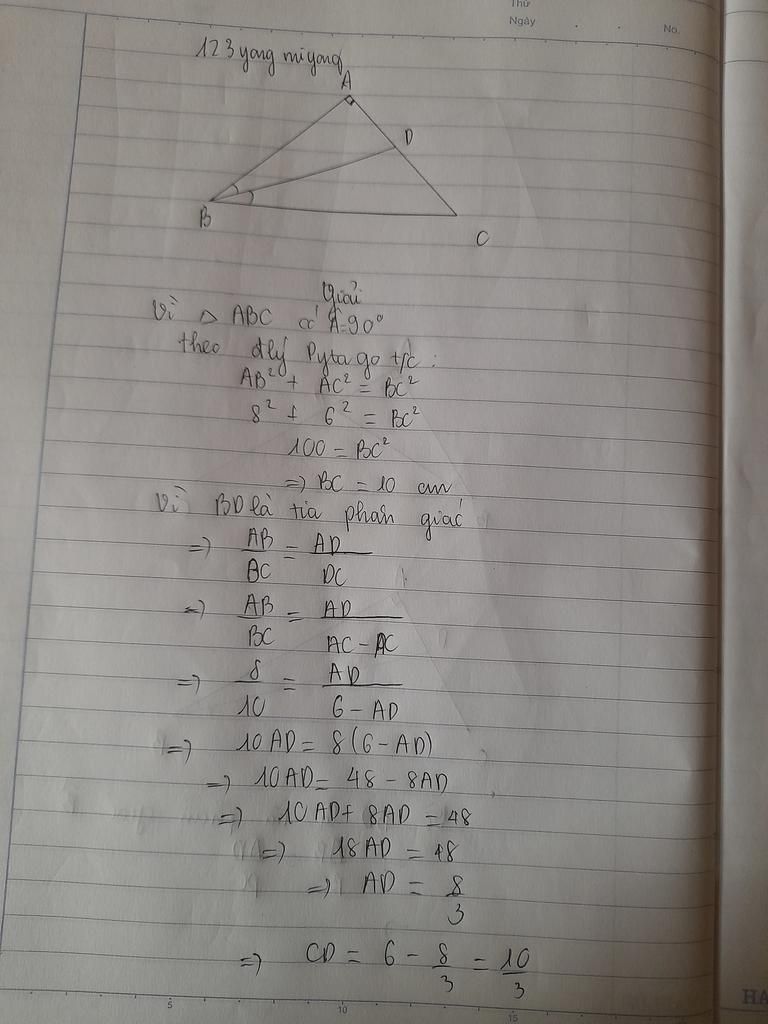 Thứ
Ngày
No.
123 yong mi yong
A
D
B
C
Giải
Vì △ ABC có Â=90°
theo đlý Pytago t/c :
AB² + AC² = BC²
8² + 6² = BC²
100 = BC²
=> BC = 10 cm
Vì BD là tia phân giác
=> AB/BC = AD/DC
=> AB/BC = AD/AC - AC
=> 8/10 = AD/6 - AD
=> 10AD = 8(6 - AD)
=> 10AD = 48 - 8AD
=> 10AD + 8AD = 48
=> 18AD = 48
=> AD = 8/3
=> CD = 6 - 8/3 = 10/3
5 10 15
HA